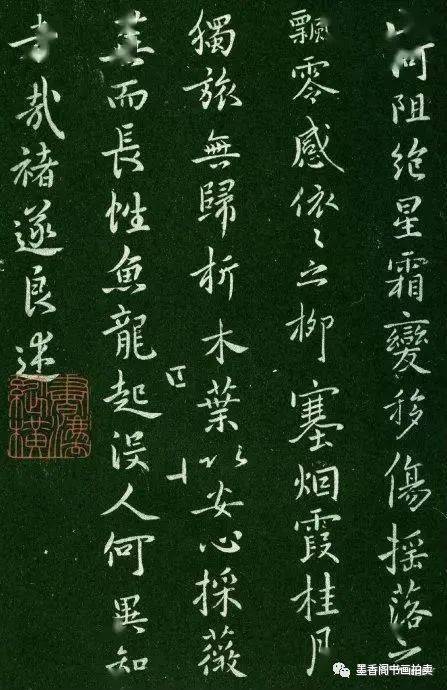 山河阻絶星霜變移傷摇落之
飄零感依〻之柳塞烟霞桂月
獨旅無歸析木葉以安心採薇
蕪而長性魚龍起没人何異知
者哉褚遂良述
墨香阁书画拍卖